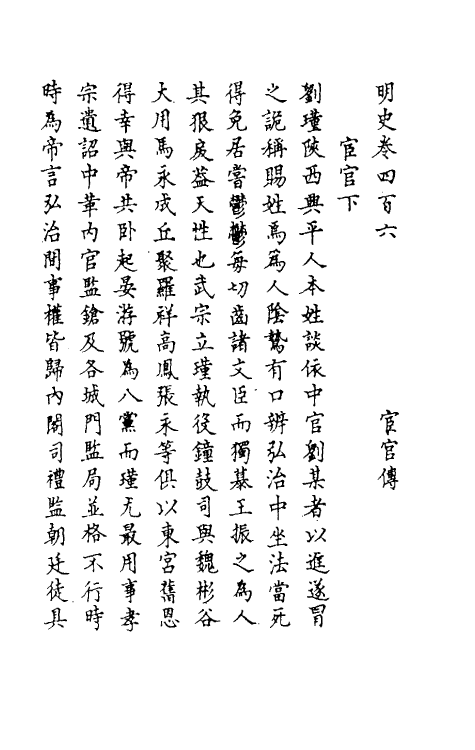 明史卷四百六
宦官傳
宦官下
劉瑾陜西興平人本姓談依中官劉某者以進遂冒
之詭稱賜姓焉爲人陰鷙有口辨弘治中坐法當死
得免居嘗鬱鬱每切齒諸文臣而獨慕王振之為人
其狠戾益天性也武宗立瑾執役鐘鼓司與魏彬谷
大用馬永成丘聚羅祥高鳳張永等俱以東宮舊恩
得幸與帝共卧起晏游號為八黨而瑾尤最用事孝
宗遺詔中革內官監鎗及各城門監局並格不行時
時為帝言弘治間事權皆歸內閣司禮監朝廷徒具